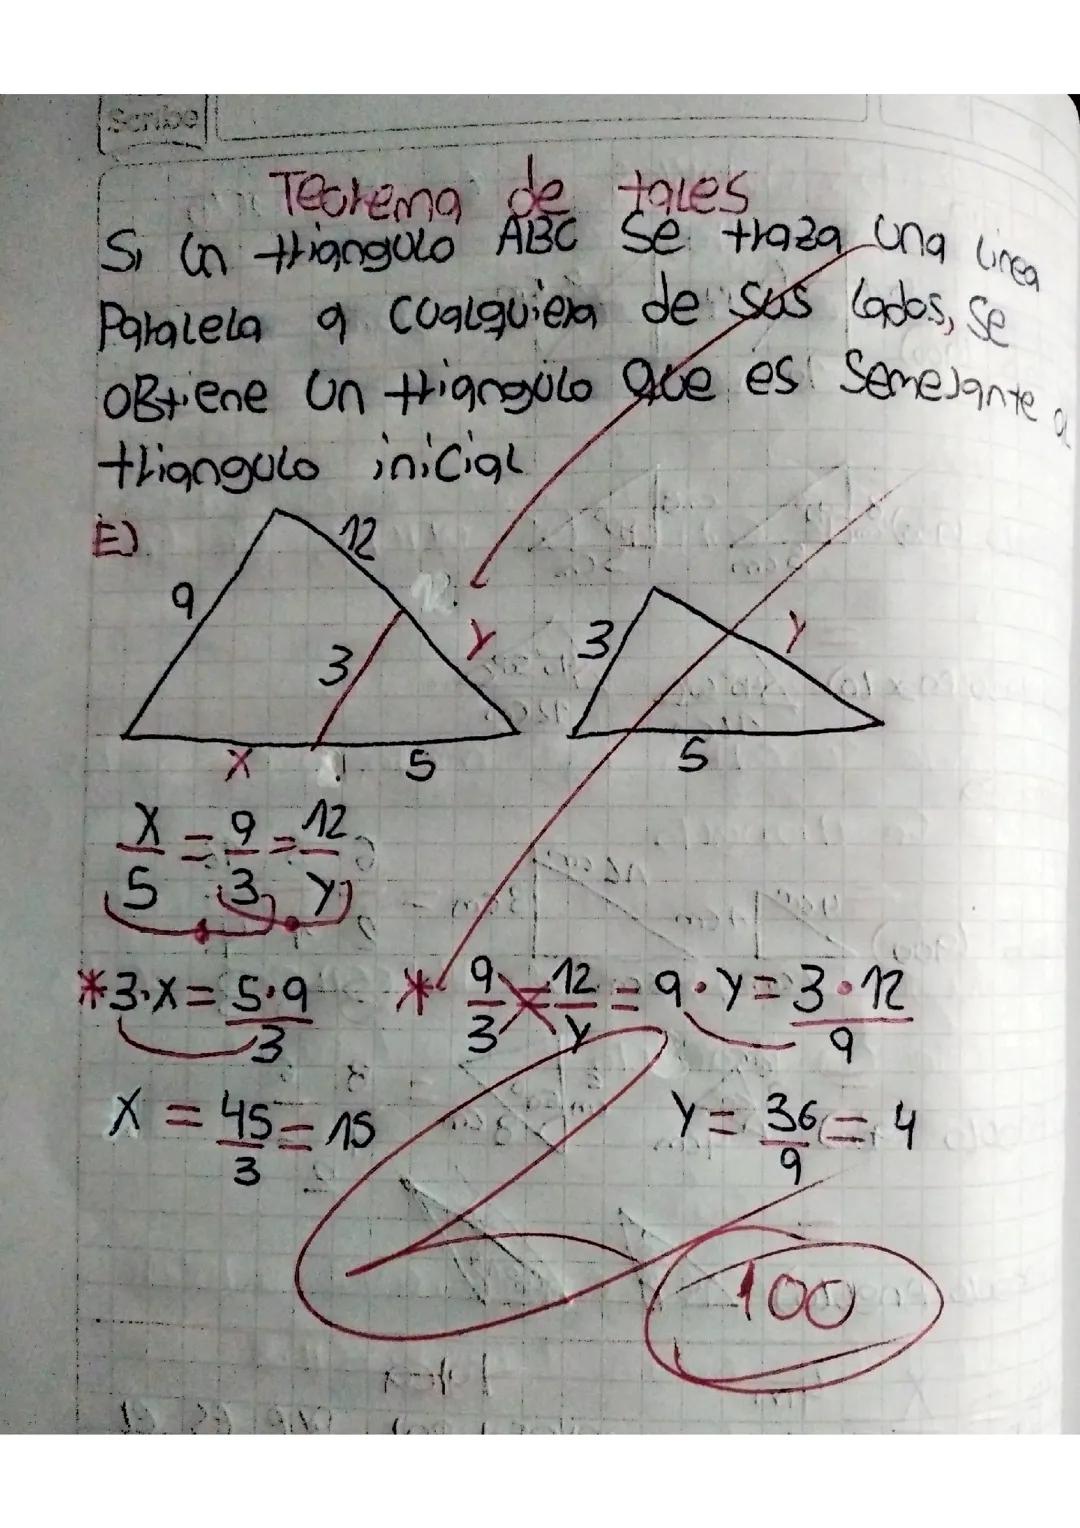 Scribe
Teorema de tales
Si un triangulo ABC se traza una linea
Paralela a cualquiera de sus lados, se
obtiene un triangulo que es semejante al
triangulo inicial
E)
12
9
3
Y
X
5
3
Y
5
X/5 = 9/3 = 12/Y
*3·X = 5·9/3
* 9/3 = 12/Y = 9·Y = 3·12/9
X = 45/3 = 15
Y = 36/9 = 4
100